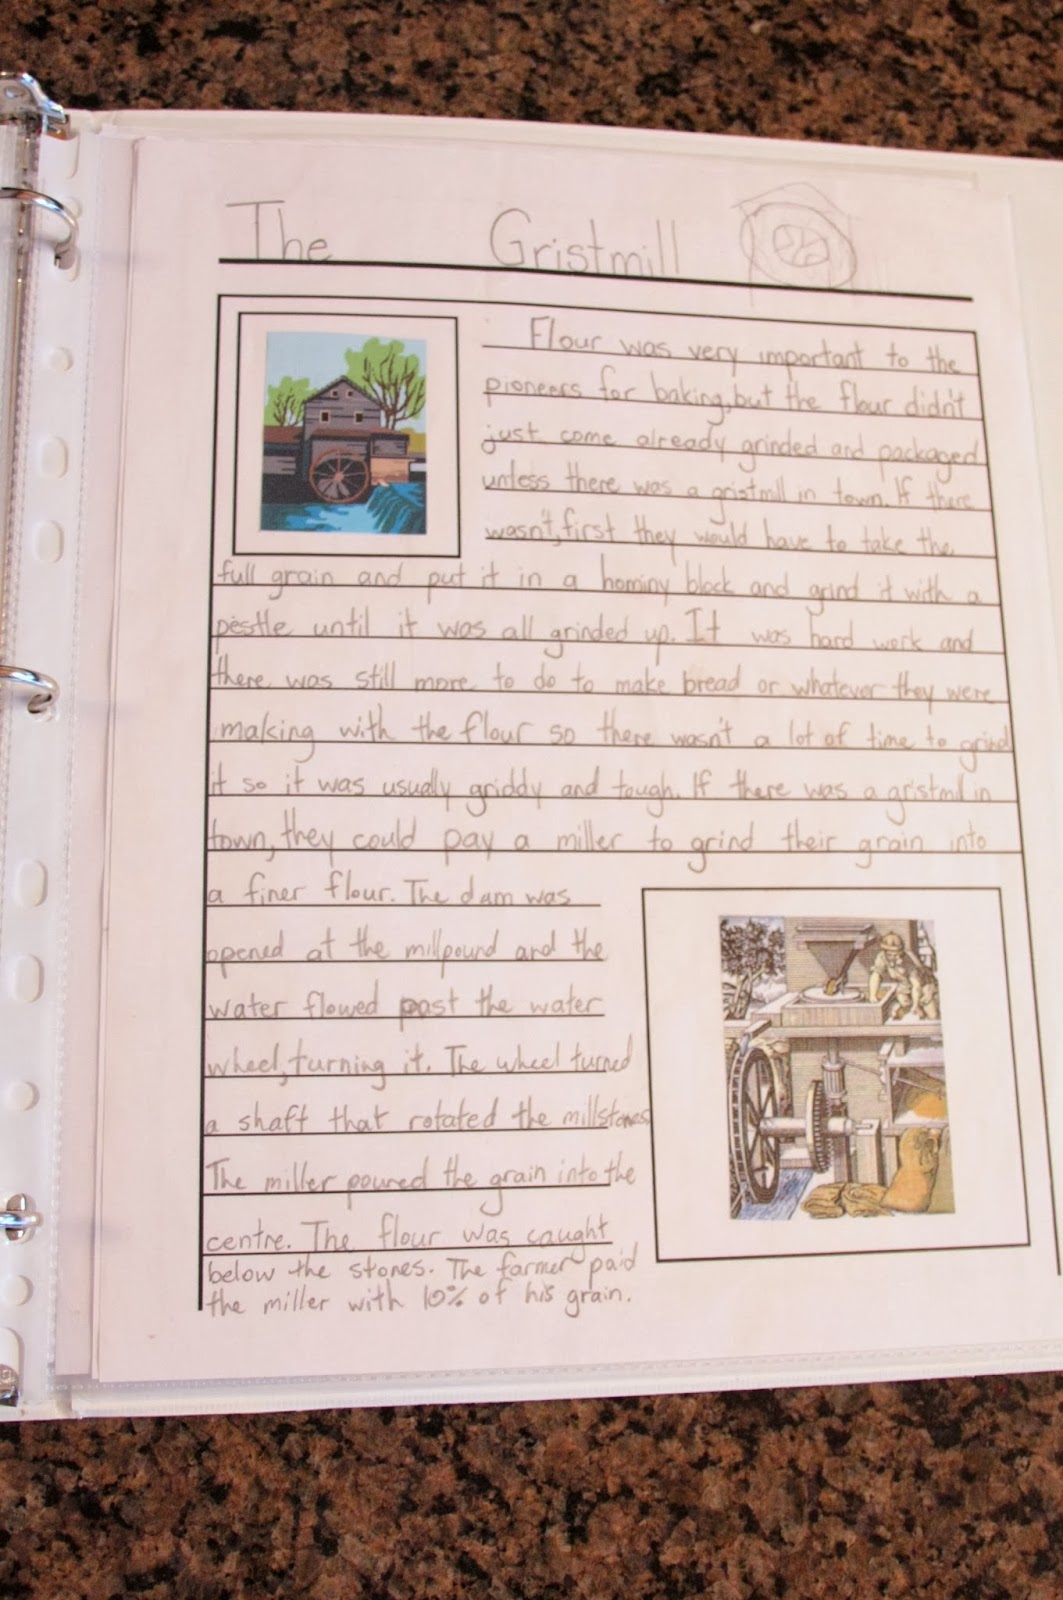 The Gristmill
Flour was very important to the
pioneers for baking, but the flour didn't
just come already grinded and packaged
unless there was a gristmill in town. If there
wasn't, first they would have to take the
full grain and put it in a hominy block and grind it with a
pestle until it was all grinded up. It was hard work and
there was still more to do to make bread or whatever they were
making with the flour so there wasn't a lot of time to grind
it so it was usually griddy and tough. If there was a gristmill in
town, they could pay a miller to grind their grain into
a finer flour. The dam was
opened at the millpound and the
water flowed past the water
wheel, turning it. The wheel turned
a shaft that rotated the millstones.
The miller poured the grain into the
centre. The flour was caught
below the stones. The farmer paid
the miller with 10% of his grain.